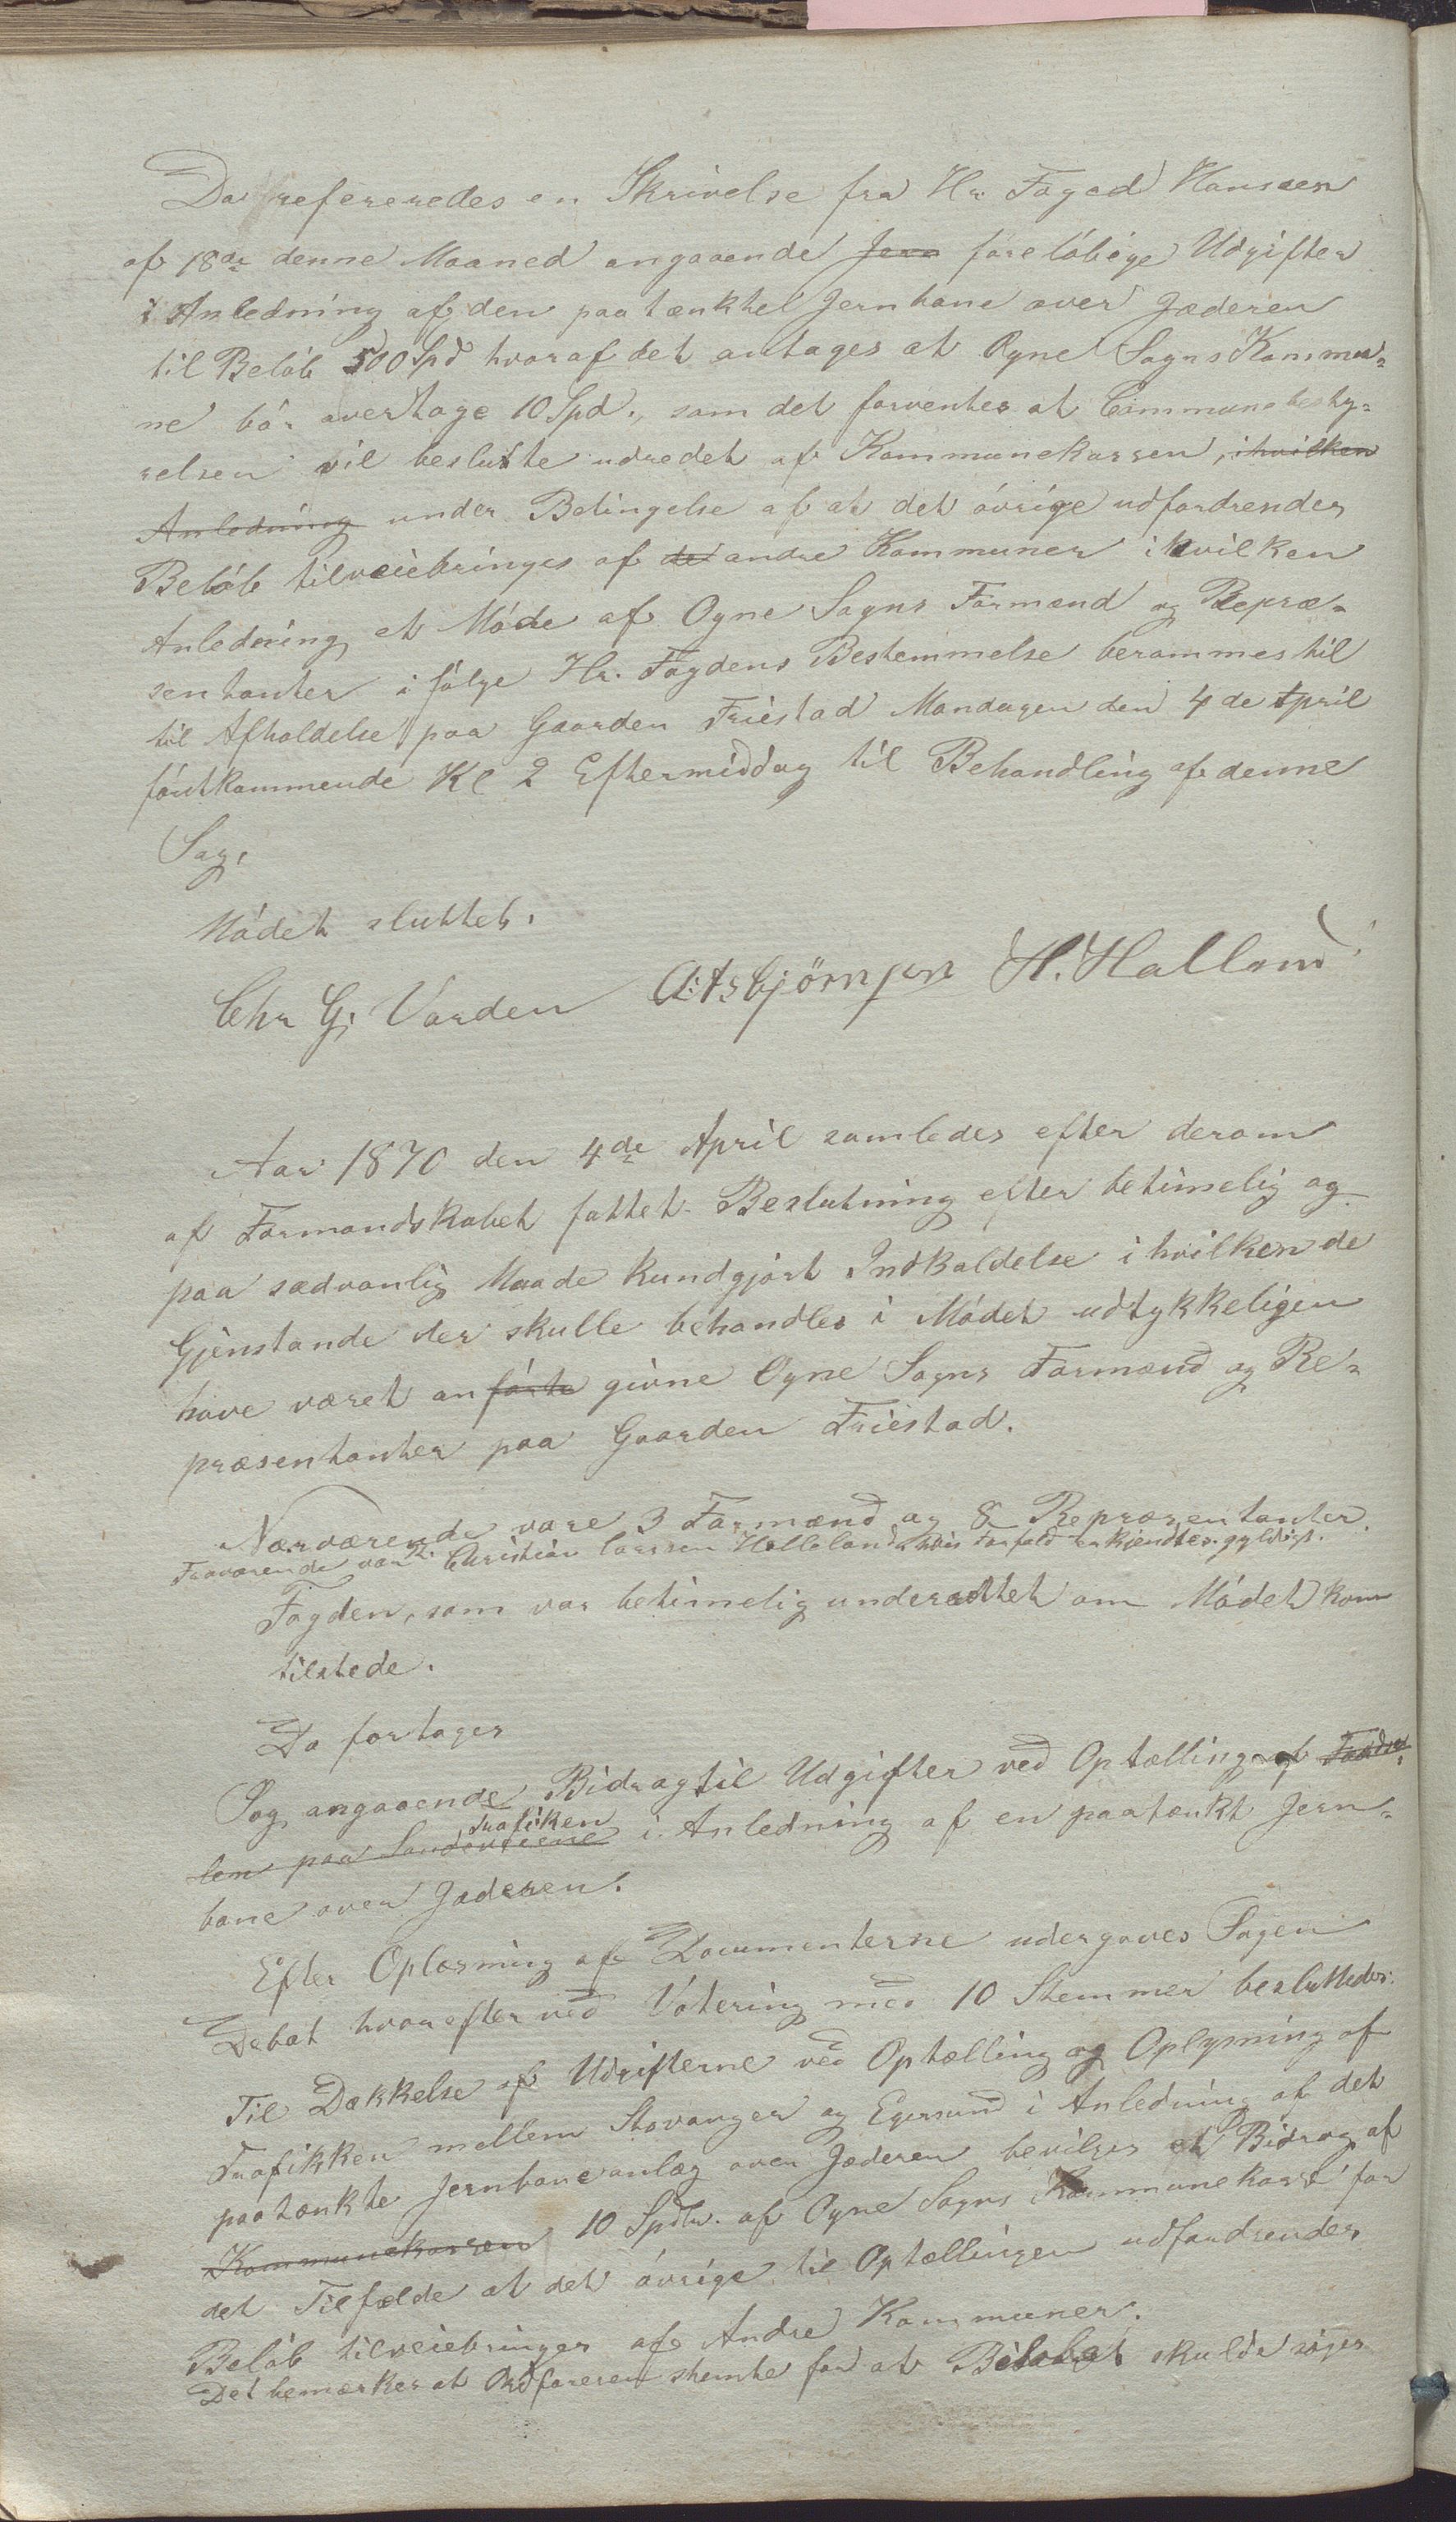 Da refereredes en Skrivelse fra Hr. Foged Hansen
af 18de denne Maaned angaaende Jern foreløbige Udgifter
i Anledning af den paatænktel Jernbane over Jæderen
til Beløb 500 Spd hvoraf det antages at Ogne Sogns Kommu-
ne bør overtage 10 Spd., som det forventes at Communebesty-
relsen vil beslutte udredet af Kommunekassen, i hvilken
Anledning under Betingelse af at det øvrige udfordrendes
Beløb tilveiebringes af de andre Kommuner i hvilken
Anledning et Møde af Ogne Sogns Formænd og Repræ-
sentanter i følge Hr. Fogdens Bestemmelse berammes til
til Afholdelse paa Gaarden Friestad Mandagen den 4de April
førstkommende Kl 2 Eftermiddag til Behandling af denne
Sag.
Mødet sluttet.
Chr G. Varden A: Asbjörnsen H. Halland
Aar 1870 den 4de April samledes efter derom
af Formandskabet fattet Beslutning efter betimelig og
paa sædvanlig Maade kundgjort Indkaldelse i hvilken de
Gjenstande der skulle behandles i Mødet udtykkeligen
have været anførte givne Ogne Sogns Formænd og Re-
præsentanter paa Gaarden Friestad.
Nærværende vare 3 Formænd og 8 Repræsentanter
Fraværende var: Christian Larssen Helleland hvis Forfald erkjendtes gyldigt.
Fogden, som var betimelig underrettet om Mødet kom
tilstede.
Da fortoges
Sag angaaende Bidrag til Udgifter ved Optælling af Færdse-
Trafiken
len paa Landeveiene i Anledning af en paatænkt Jern-
bane over Jæderen.
Efter Oplæsning af Documenterne undergaves Sagen
Debat hvorefter ved Votering med 10 Stemmer besluttedes:
Til Dækkelse af Udgifterne ved Optælling og Oplysning af
Trafikken mellem Stavanger og Egersund i Anledning af det
paatænkte Jernbaneanlæg over Jæderen bevilges et Bidrag af
Kommunekassen 10 Spdlr. af Ogne Sogns Kommunekasse for
det Tilfælde at det øvrige til Optællingen udfordrendes
Beløb tilveiebringes af Andre Kommuner.
Det bemærkes at Ordføreren stemte for at Beløbet skulde søges